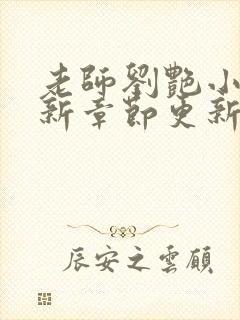 老師劉艷小
新章節更新
辰安之雲顧